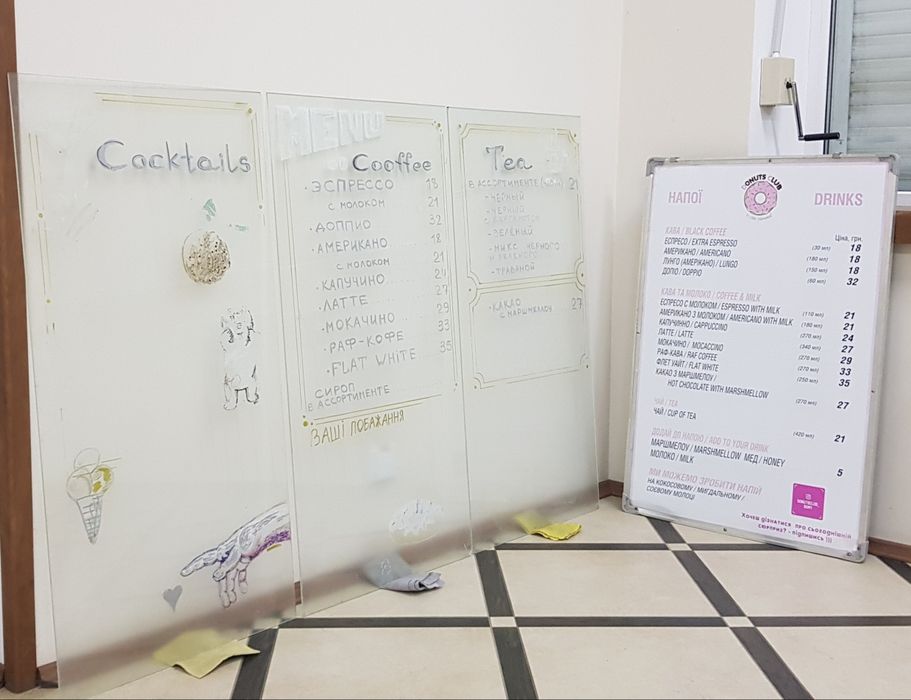 Cocktails
MENU
Cooffee
ЭСПРЕССО 18
С МОЛОКОМ 21
ДОППИО 32
АМЕРИКАНО 18
С МОЛОКОМ 21
КАПУЧИНО 24
ЛАТТЕ 27
МОКАЧИНО 29
РАФ-КОФЕ 33
FLAT WHITE 35
СИРОП
В АССОРТИМЕНТЕ
ЗАШІ ПОБАЖАННЯ
Tea
В АССОРТИМЕНТЕ 21
- ЧЕРНЫЙ
- ЧЕРНЫЙ
С БЕРГАМОТОМ
- ЗЕЛЁНЫЙ
- МИКС ЧЕРНОГО
И ЗЕЛЕНОГО
- ТРАВЯНОЙ
КАКАО 27
С МАРШМЕЛОУ
НАПОЇ
DONUTS CLUB
DRINKS
Ціна, грн.
КАВА / BLACK COFFEE
ЕСПРЕСО / EXTRA ESPRESSO (30 мл) 18
АМЕРИКАНО / AMERICANO (180 мл) 18
ЛУНГО (АМЕРІКАНО) / LUNGO (150 мл) 18
ДОПІО / DOPPIO (60 мл) 32
КАВА ТА МОЛОКО / COFFEE & MILK
ЕСПРЕСО С МОЛОКОМ / ESPRESSO WITH MILK (110 мл) 21
АМЕРИКАНО З МОЛОКОМ / AMERICANO WITH MILK (180 мл) 21
КАПУЧИННО / CAPPUCCINO (270 мл) 24
ЛАТТЕ / LATTE (340 мл) 27
МОКАЧИНО / MOCACCINO (270 мл) 29
РАФ-КАВА / RAF COFFEE (270 мл) 33
ФЛЕТ УАЙТ / FLAT WHITE (250 мл) 35
КАКАО З МАРШМЕЛОУ /
HOT CHOCOLATE WITH MARSHMELLOW (270 мл) 27
ЧАЙ / TEA
ЧАЙ / CUP OF TEA (420 мл) 21
ДОДАЙ ДО НАПОЮ / ADD TO YOUR DRINK
МАРШМЕЛОУ / MARSHMELLOW МЕД / HONEY
МОЛОКО / MILK 5
МИ МОЖЕМО ЗРОБИТИ НАПІЙ
НА КОКОСОВОМУ / МИГДАЛЬНОМУ /
СОЄВОМУ МОЛОЦІ
Хочеш дізнатися про сьогоднішній
сюрприз? - підпишись !!!